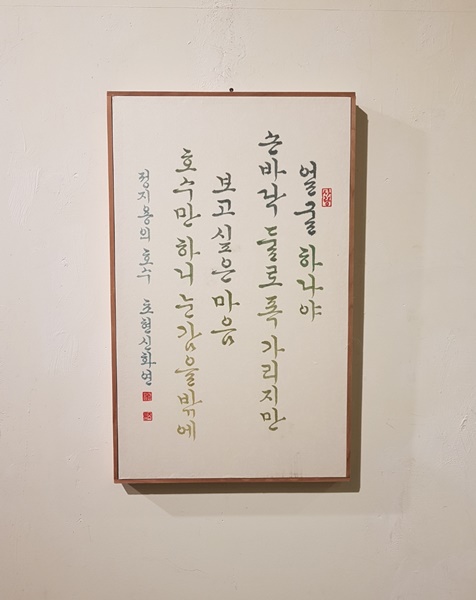 얼굴 하나야
손바닥 둘로 폭 가리지만
보고싶은 마음
호수만 하니 눈감을밖에
정지용의 호수 초형신화연